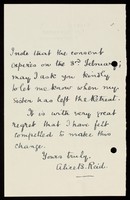 I note that the consent
expires on the 3rd February
may I ask you kindly
to let me know when my
sister has left the Retreat.
It is with very great
regret that I have felt
compelled to make this
change.
Yours truly,
Alice B. Reid.